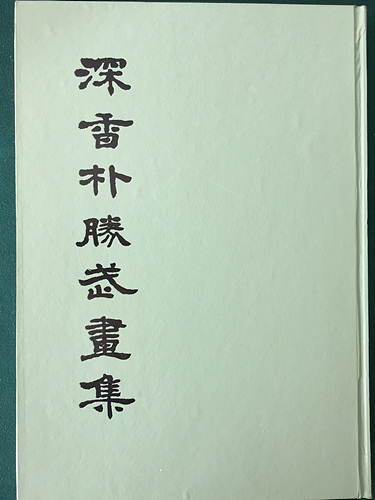 深香朴勝武畫集